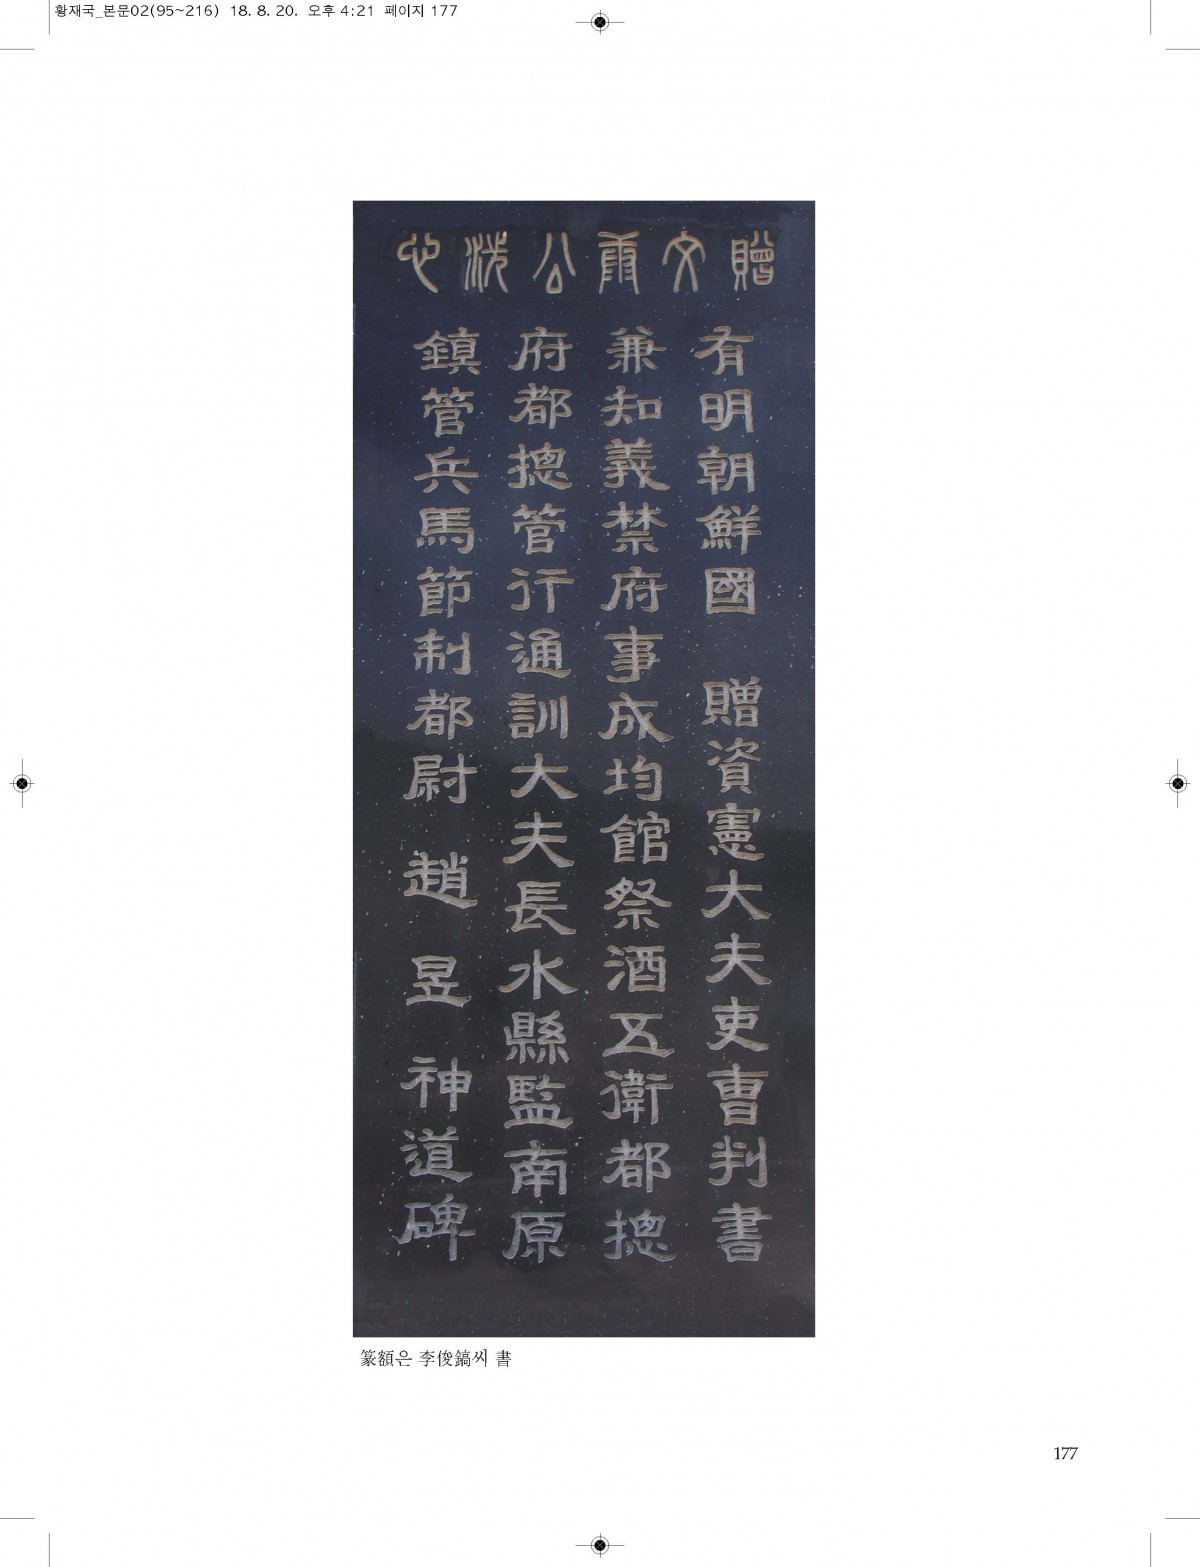 황재국_본문02(95~216) 18. 8. 20. 오후 4:21 페이지 177
贈文康公洗心
有明朝鮮國 贈資憲大夫吏曹判書
兼知義禁府事成均館祭酒五衛都摠
府都摠管行通訓大夫長水縣監南原
鎮管兵馬節制都尉 趙 昱 神道碑
篆額은 李俊鎬씨 書
177